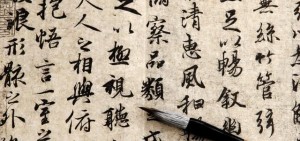 無絲竹管弦
足以暢敘幽
清惠風和
察品類
足以極視聽
人之相與俯
抱悟言一室之
浪形骸之外